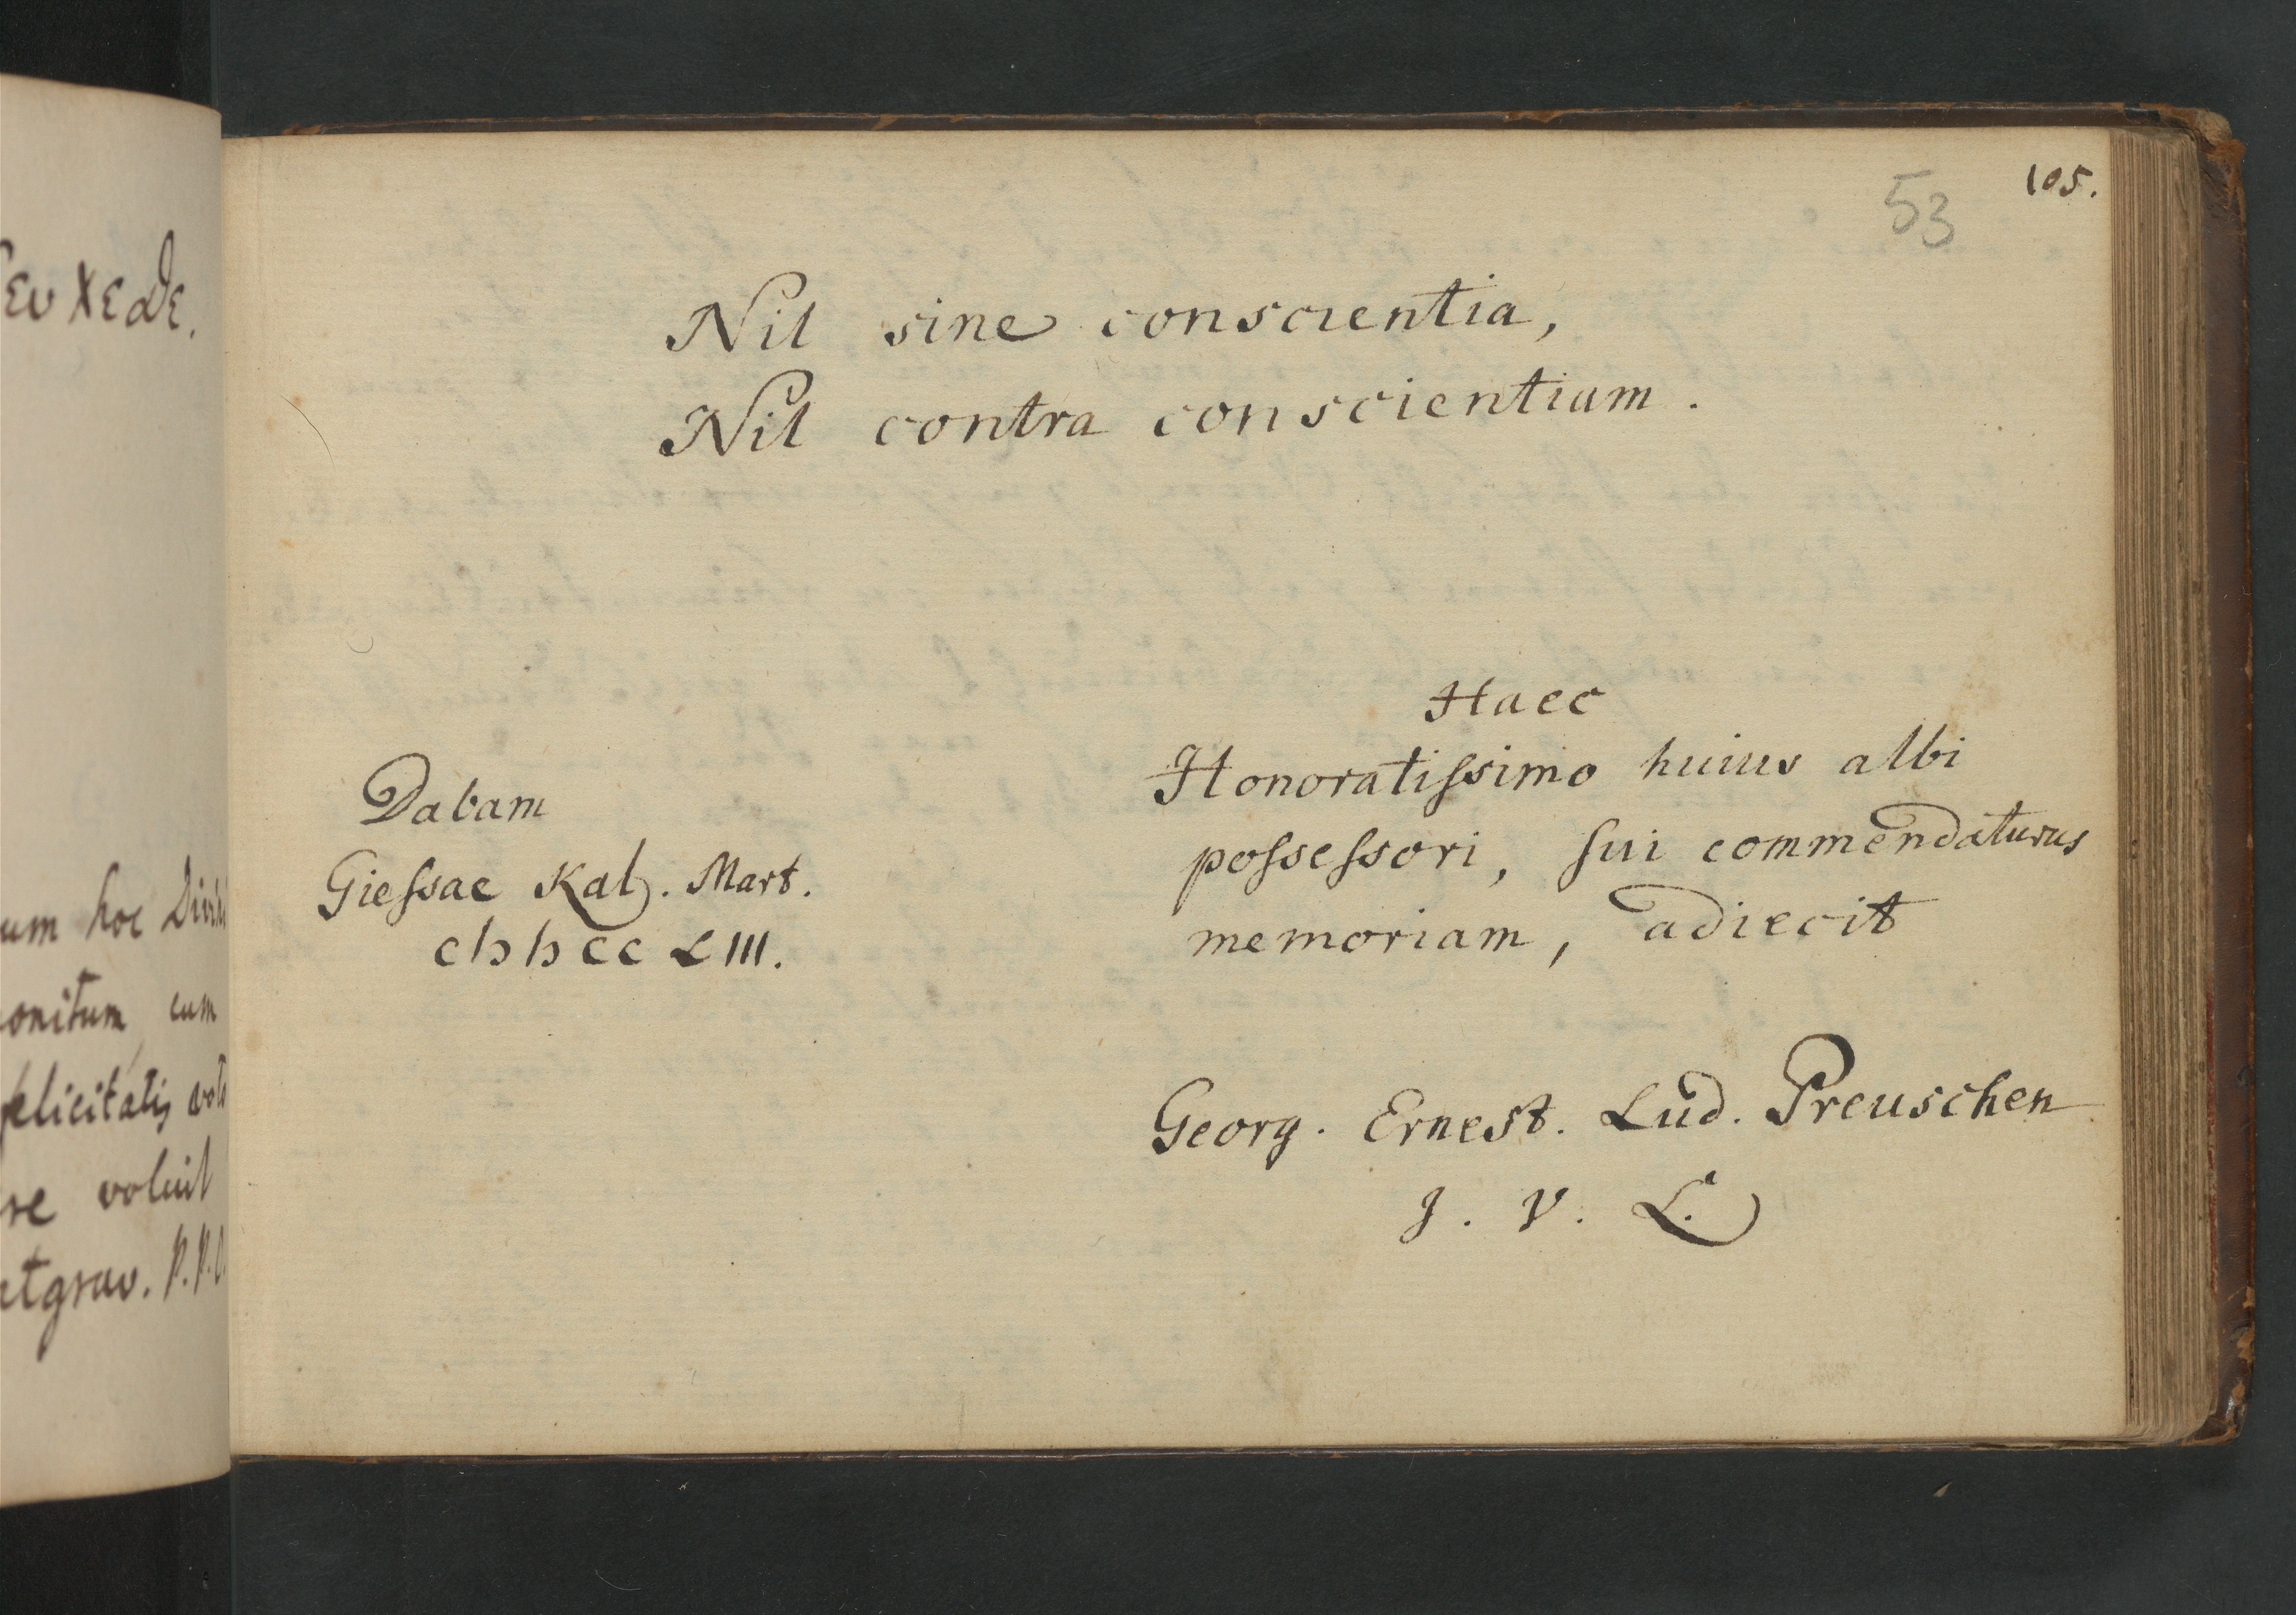 53
105.
Nil sine conscientia,
Nil contra conscientiam.
Haec
Honoratiſsimo huius albi
poſseſsori, ſui commendaturus
memoriam, adiecit
Georg. Ernest. Lud. Preuschen
J. V. L.
Dabam
Gieſsae Kal. Mart.
cIɔ Iɔ cc LIII.
um hoc
onitum cum
elicitatis
re voluit
tgrav. P. P.